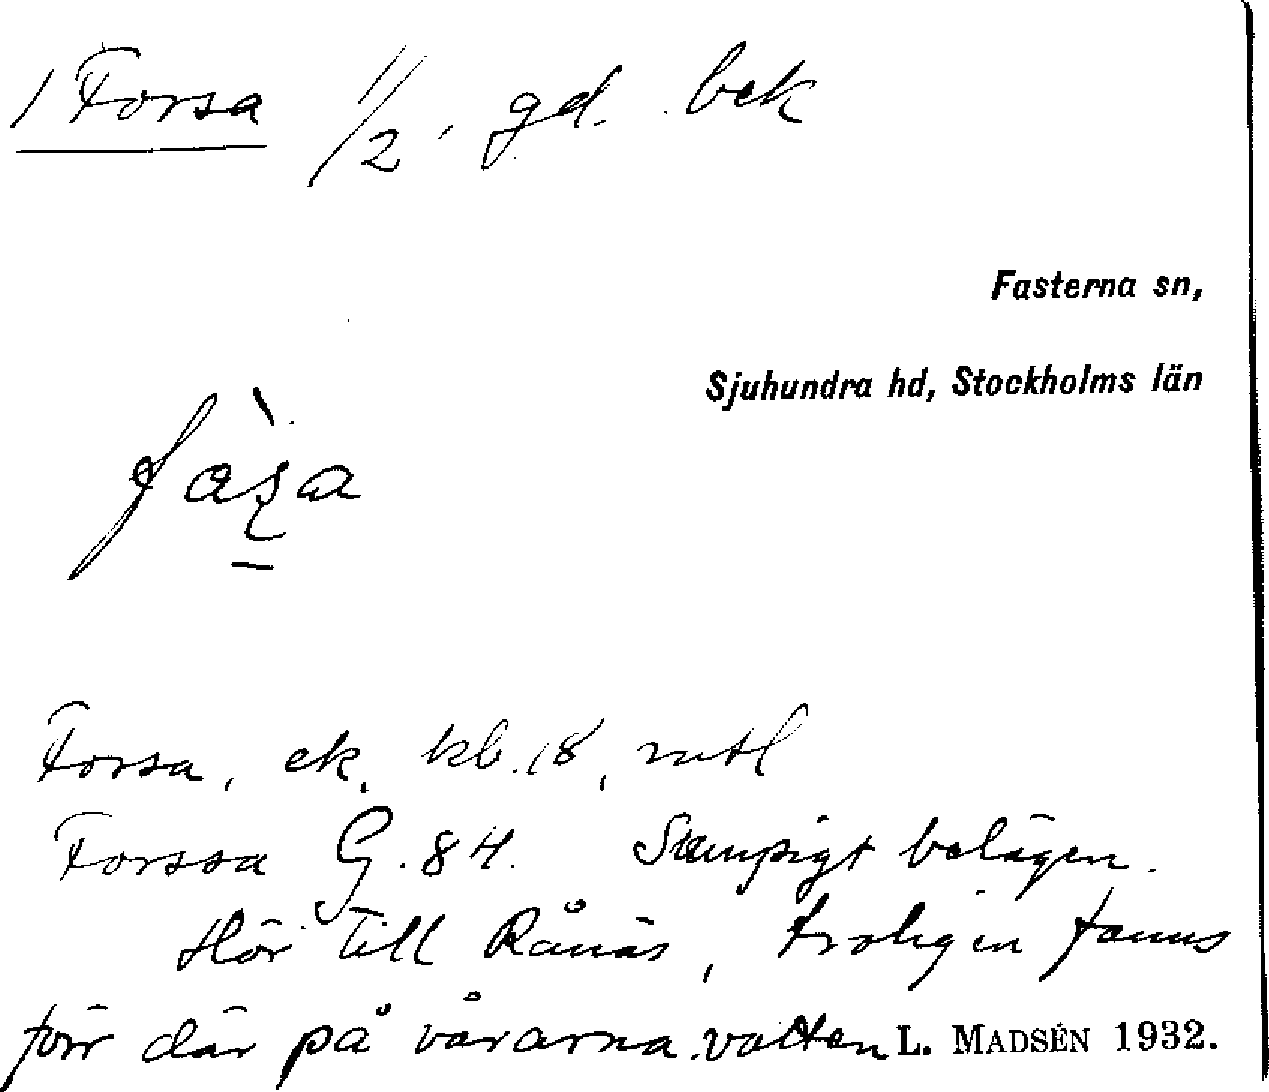 1 Forsa 1/2, gd. bek
Fasterna sn,
Sjuhundra hd, Stockholms län
Forsa, ek, kb. 18, mtl
Forssa G. 84. Sumpigt belägen.
Hör till Rånäs, troligen fanns
förr där på vårarna vatten L. MADSÉN 1932.